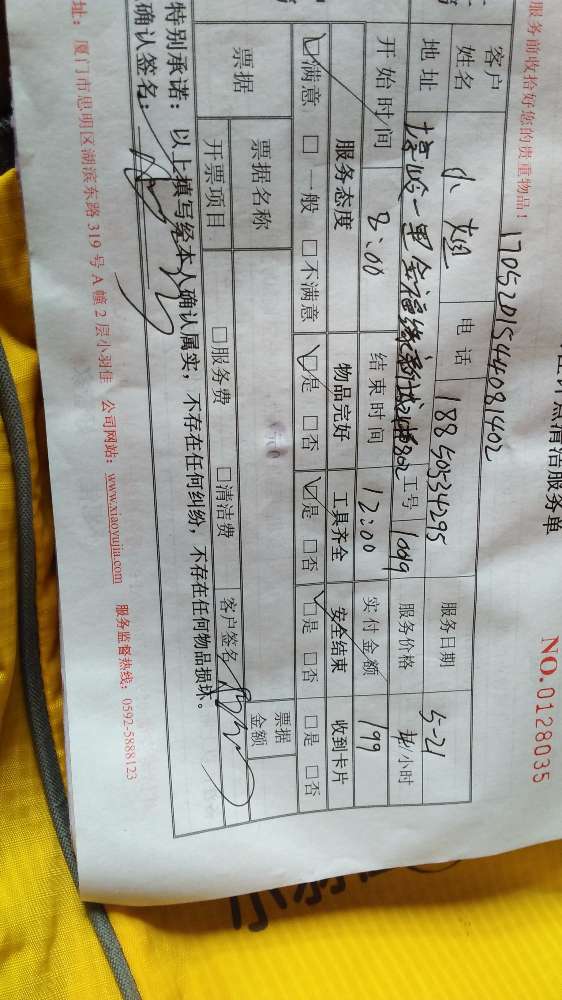 计点清洁服务单
NO.0128035
服务前收拾好您的贵重物品!
1705201544081402
客户姓名 小姐 电话 18850534295 服务日期 5-21
地址 一里金福缘 工号 1009 服务价格 /小时
开始时间 8:00 结束时间 12:00 实付金额 199
服务态度 物品完好 工具齐全 安全结束 收到卡片
☑满意 □一般 □不满意 ☑是 □否 ☑是 □否 ☑是 □否 □是 □否
票据 票据名称 票据金额
开票项目 □服务费 □清洁费 客户签名
特别承诺：以上填写经本人确认属实，不存在任何纠纷，不存在任何物品损坏。
确认签名：
址：厦门市思明区湖滨东路 319 号 A 幢 2 层小羽佳 公司网站：www.xiaoyujia.com 服务监督热线：0592-5888123